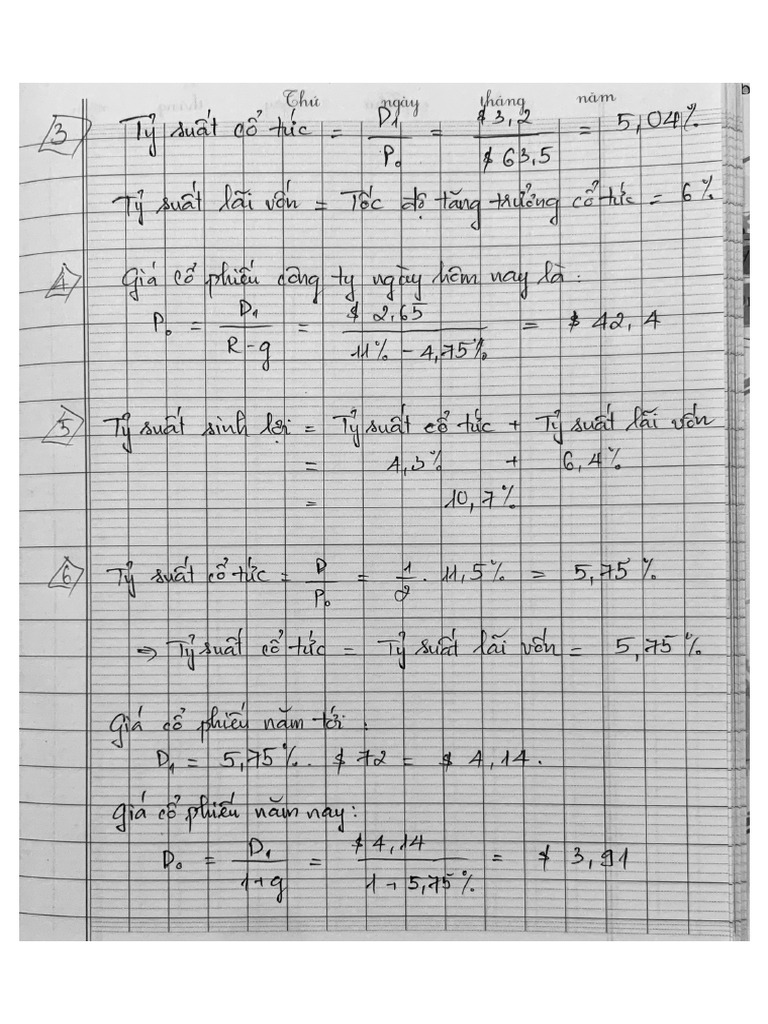 Thứ ngày tháng năm
3 Tỷ suất cổ tức = D1/P0 = $3,2/$63,5 = 5,04%
Tỷ suất lãi vốn = Tốc độ tăng trưởng cổ tức = 6%
4 Giá cổ phiếu công ty ngày hôm nay là:
P0 = D1/R-g = $2,65/11% - 4,75% = $42,4
5 Tỷ suất sinh lợi = Tỷ suất cổ tức + Tỷ suất lãi vốn
= 4,3% + 6,4%
= 10,7%
6 Tỷ suất cổ tức = D/P0 = 1/2 . 11,5% = 5,75%
⇒ Tỷ suất cổ tức = Tỷ suất lãi vốn = 5,75%
Giá cổ phiếu năm tới:
D1 = 5,75% . $72 = $4,14.
Giá cổ phiếu năm nay:
D0 = D1/1+g = $4,14/1+5,75% = $3,91